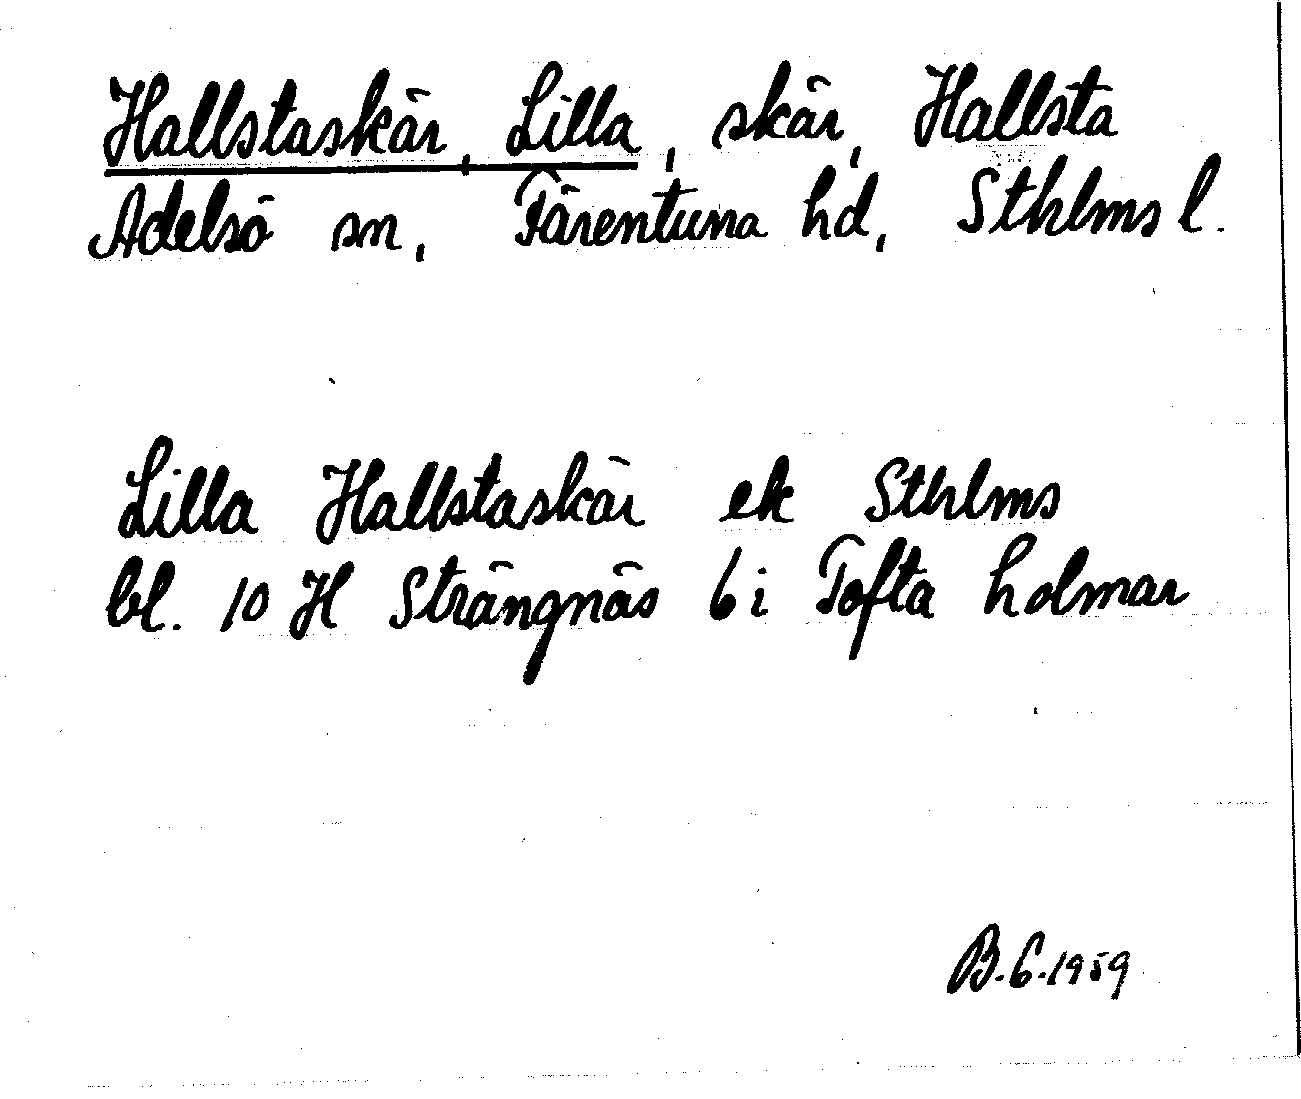 Hallstaskär, Lilla, skär, Hallsta
Adelsö sn, Färentuna hd, Sthlms l.
Lilla Hallstaskär ek Sthlms
bl. 10 H Strängnäs 6 i Tofta holmar
B.G. 1959